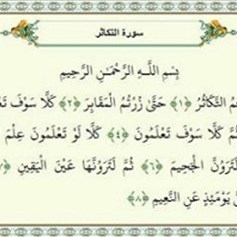 سورة التكاثر
بِسْمِ اللَّـهِ الرَّحْمَـٰنِ الرَّحِيمِ
التَّكَاثُرُ ﴿١﴾ حَتَّىٰ زُرْتُمُ الْمَقَابِرَ ﴿٢﴾ كَلَّا سَوْفَ
كَلَّا سَوْفَ تَعْلَمُونَ ﴿٤﴾ كَلَّا لَوْ تَعْلَمُونَ عِلْمَ
لَتَرَوُنَّ الْجَحِيمَ ﴿٦﴾ ثُمَّ لَتَرَوُنَّهَا عَيْنَ الْيَقِينِ ﴿٧﴾
يَوْمَئِذٍ عَنِ النَّعِيمِ ﴿٨﴾